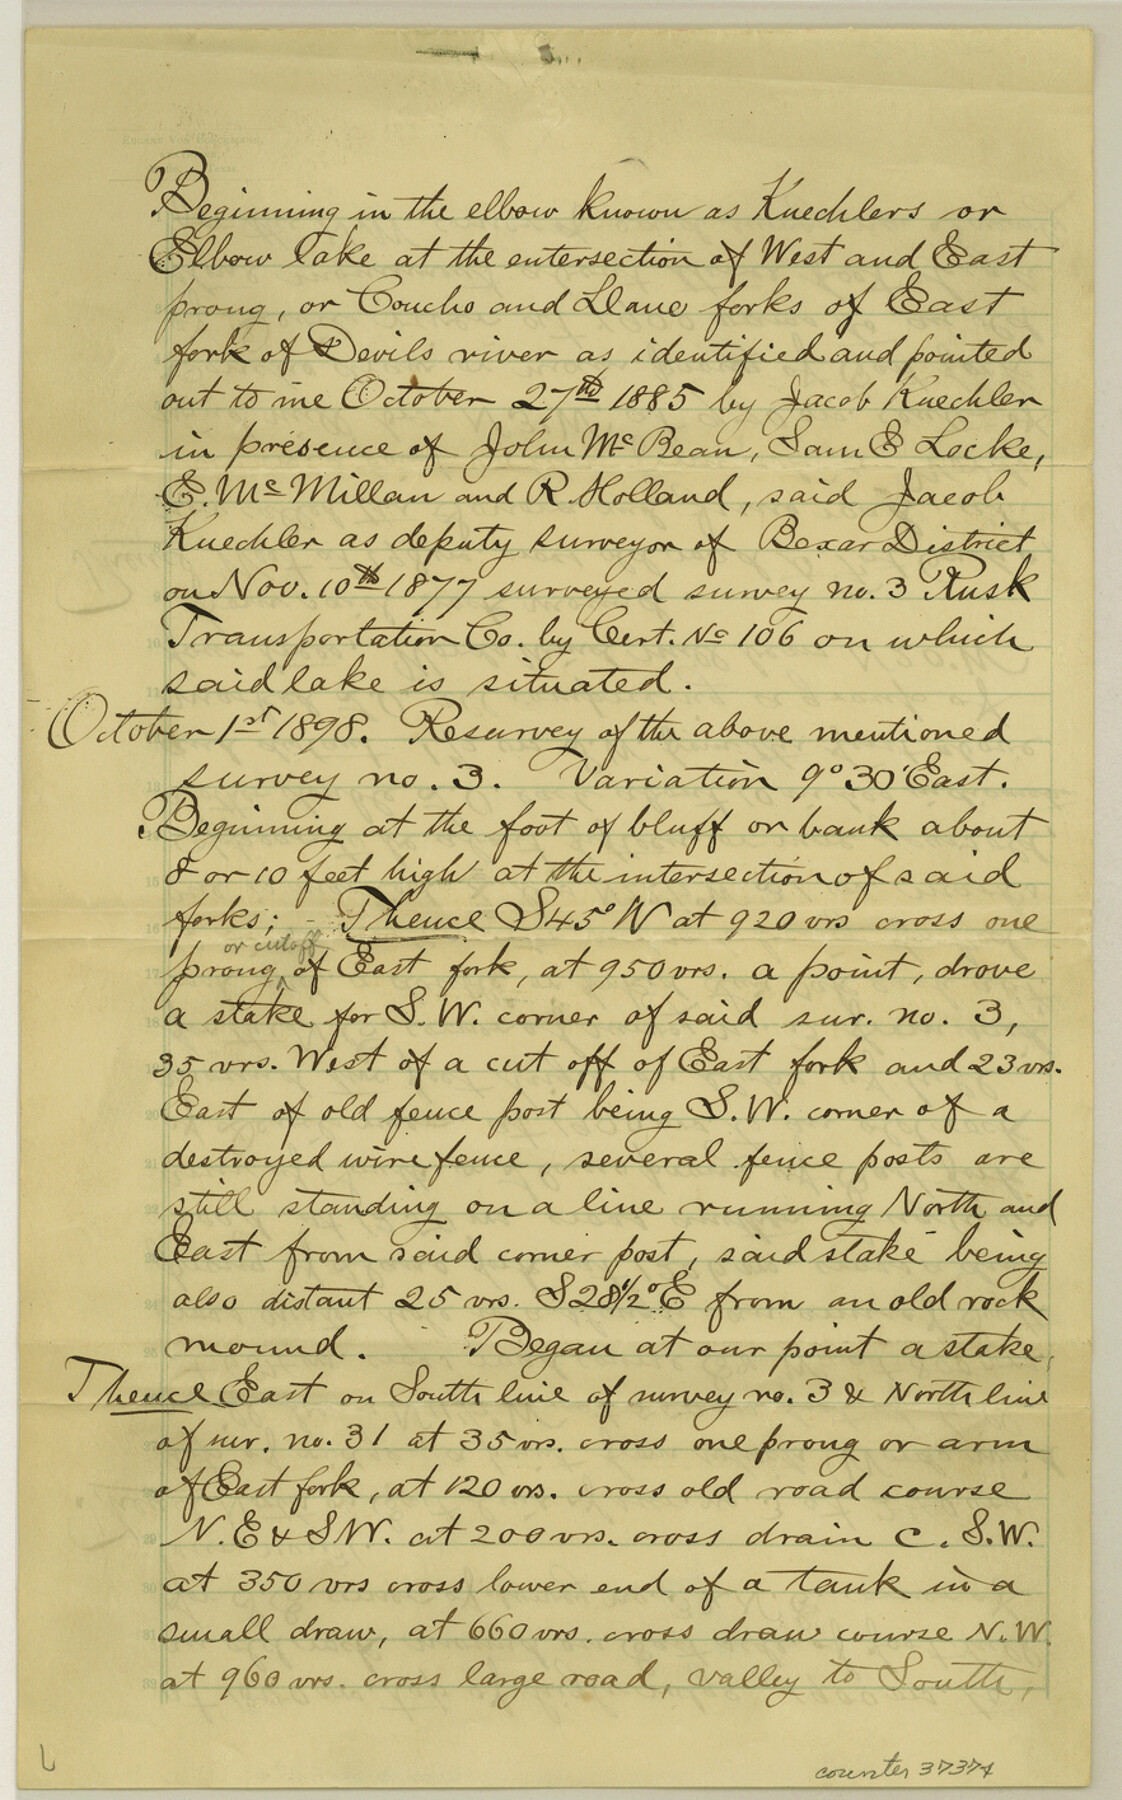 Beginning in the elbow known as Kuechlers or
Elbow lake at the entersection of West and East
prong, or Concho and Llano forks of East
fork of Devils river as identified and pointed
out to me October 27th 1885 by Jacob Kuechler
in presence of John McBean, Sam E Locke,
E. McMillan and R. Holland, said Jacob
Kuechler as deputy surveyor of Bexar District
on Nov. 10th 1877 surveyed survey no. 3 Rusk
Transportation Co. by Cert. No 106 on which
said lake is situated.
October 1st 1898. Resurvey of the above mentioned
survey no. 3. Variation 9° 30' East.
Beginning at the foot of bluff or bank about
8 or 10 feet high at the intersection of said
forks; - Thence S45° W at 920 vrs cross one
or cutoff
prong ^ of East fork, at 950 vrs. a point, drove
a stake for S.W. corner of said sur. no. 3,
35 vrs. West of a cut off of East fork and 23 vrs.
East of old fence post being S.W. corner of a
destroyed wire fence, several fence posts are
still standing on a line running North and
East from said corner post, said stake being
also distant 25 vrs. S28 1/2° E from an old rock
mound. Began at our point a stake,
Thence East on South line of survey no. 3 & North line
of sur. no. 31 at 35 vrs. cross one prong or arm
of East fork, at 120 vrs. cross old road course
N.E & S.W. at 200 vrs. cross drain c. S.W.
at 350 vrs cross lower end of a tank in a
small draw, at 660 vrs. cross draw course N.W.
at 960 vrs. cross large road, valley to South,
counter 37374